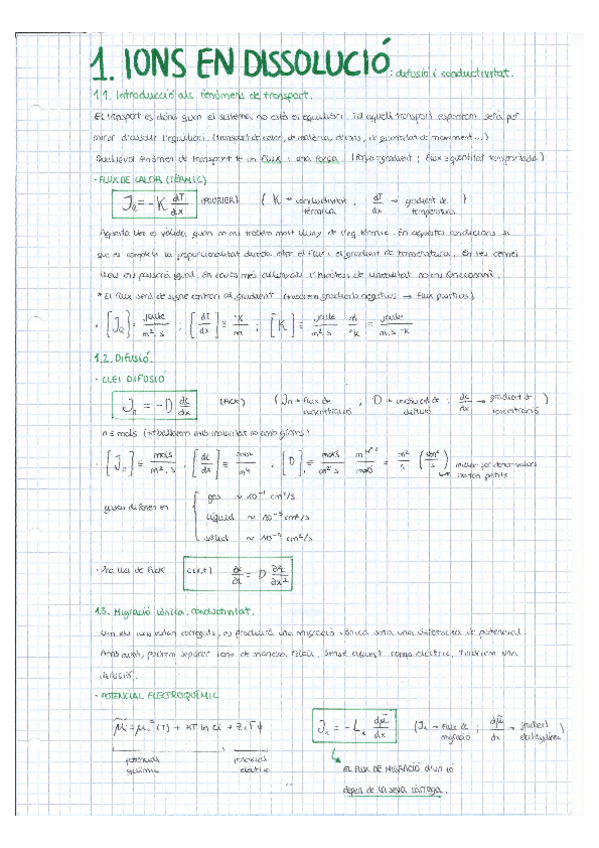 1. IONS EN DISSOLUCIÓ: difusió i conductivitat.
1.1. Introducció als fenòmens de transport.
El transport es dóna quan el sistema no està en equilibri, i aquell transport espontani serà per
mirar d'assolir l'equilibri (transport de calor, de matèria, d'ions, de quantitat de moviment...)
Qualsevol fenomen de transport té un flux i una força (força = gradient; flux = quantitat transportada)
- FLUX DE CALOR (TÈRMIC)
J = -K dT/dx (FOURIER) (K → conductivitat tèrmica, dT/dx → gradient de temperatura)
Aquesta llei és vàlida quan no ens trobem molt lluny de l'eq. tèrmic. En aquestes condicions sí
que es compleix la proporcionalitat directa entre el flux i el gradient de temperatura. En
* El flux serà de signe contrari al gradient (tindrem gradients negatius → flux positiu)
[J] = joule/m²·s ; [dT/dx] = °K/m ; [K] = joule/m²·s m/°K = joule/m·s·°K
1.2. Difusió.
- LLEI DIFUSIÓ
Jn = -D dc/dx (FICK) (Jn → flux de concentració ; D → coeficient de difusió ; dc/dx → gradient de concentració)
n = mols
[Jn] = mols/m²·s , [dc/dx] = mols/m⁴ , [D] = m²/s (cm²/s)
gas ~ 10⁻¹ cm²/s
líquid ~ 10⁻⁵ cm²/s
sòlid ~ cm²/s
- 2na llei de Fick c(x,t) = D
1.3. Migració iònica. Conductivitat.
Com els ions estan carregats, es produirà una migració iònica sota una diferència de potencial.
Amb això, podrem separar ions de manera fàcil. Sense aquest camp elèctric, tindríem una
difusió.
- POTENCIAL ELECTROQUÍMIC
μ̃i = μi°(T) + KT ln ci + zi F ϕ
potencial químic potencial elèctric
Ji = -Li dμ̃/dx (Ji → flux de migració ; dμ̃/dx → gradient)
EL FLUX DE MIGRACIÓ d'un ió
depèn de la seva càrrega.